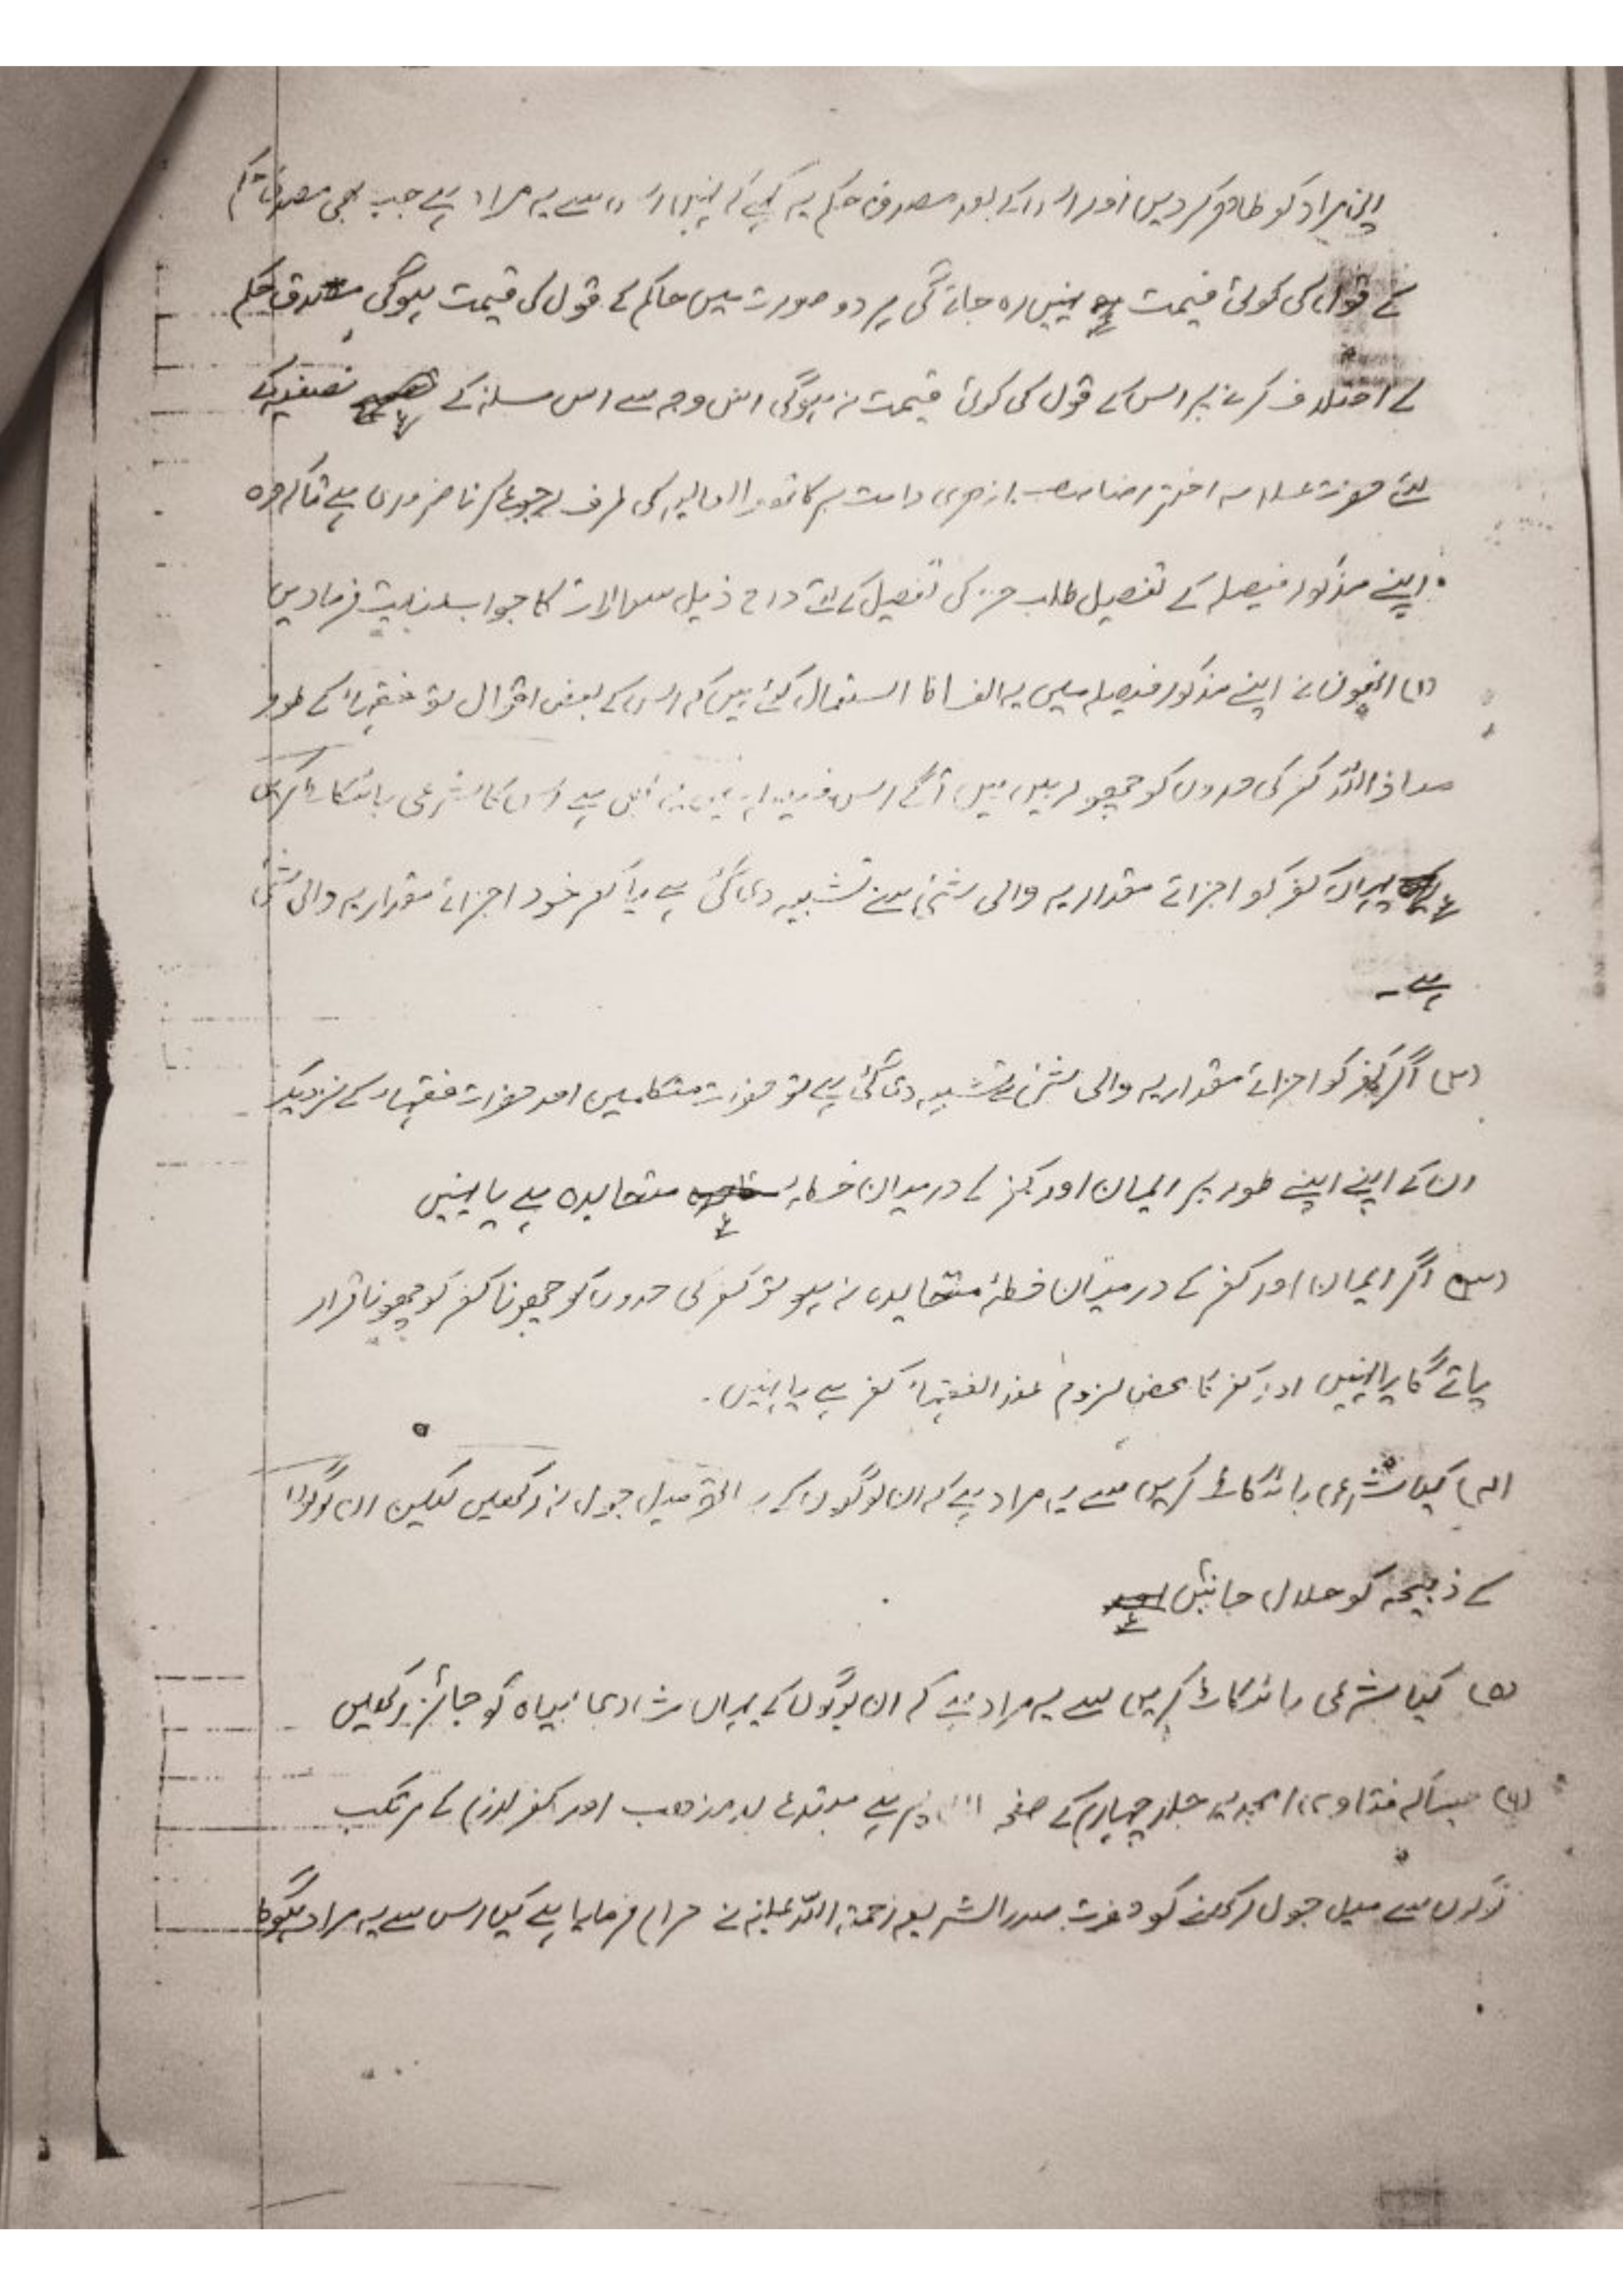 اپنی مراد کو ظاہر کر دیں اور اس کے بعد مصدق حکم یہ کہے کہ نہیں اس سے یہ مراد ہے جب بھی مصدق حکم
کے قول کی کوئی قیمت نہیں رہ جائے گی ہر دو صورت میں حاکم کے قول کی قیمت ہوگی مصدق حکم
کے اختلاف کرنے پر اس کے قول کی کوئی قیمت نہ ہوگی اس وجہ سے اس مسئلہ کے تصفیہ کے
لئے حضرت علامہ اختر رضا صاحب ازہری دامت برکاتہم العالیہ کی طرف رجوع کرنا ضروری ہے تاکہ وہ
اپنے مذکور فیصلہ کے تفصیل طلب جز کی تفصیل کے لئے درج ذیل سوالات کا جواب عنایت فرمادیں
(۱) انھوں نے اپنے مذکور فیصلہ میں یہ الفاظ استعمال کئے ہیں کہ اس کے بعض اقوال تو فقہاء کے طور
معاذ اللہ کفر کی حدوں کو چھو رہے ہیں آگے اس فیصلہ میں یہ بھی ہے اس کا شرعی بائیکاٹ کریں
یہاں کفر کو اجزائے مقداریہ والی شئی سے تشبیہ دی گئی ہے یا کفر خود اجزائے مقداریہ والی شئی
ہے ۔
(۲) اگر کفر کو اجزائے مقداریہ والی شئی سے تشبیہ دی گئی ہے تو حضرات متکلمین اور حضرات فقہاء کے نزدیک
ان کے اپنے اپنے طور پر ایمان اور کفر کے درمیان خطہ متحایدہ ہے یا نہیں
(۳) اگر ایمان اور کفر کے درمیان خطۂ متحایدہ نہ ہو تو کفر کی حدوں کو چھونا کفر کو چھونا قرار
پائے گا یا نہیں اور کفر کا محض لزوم عند الفقہاء کفر ہے یا نہیں ۔
(۴) کیا شرعی بائیکاٹ کریں سے یہ مراد ہے کہ ان لوگوں کے ساتھ میل جول نہ رکھیں لیکن ان لوگوں
کے ذبیحہ کو حلال جانیں
(۵) کیا شرعی بائیکاٹ کریں سے یہ مراد ہے کہ ان لوگوں کے یہاں شادی بیاہ کو جائز رکھیں
(۶) جیسا کہ فتاویٰ امجدیہ جلد چہارم کے صفحہ میں ہے مبتدع بد مذہب اور کفر لزوم کے مرتکب
لوگوں سے میل جول رکھنے کو حضرت صدر الشریعہ رحمۃ اللہ علیہ نے حرام فرمایا ہے کیا اس سے یہ مراد ہوگا